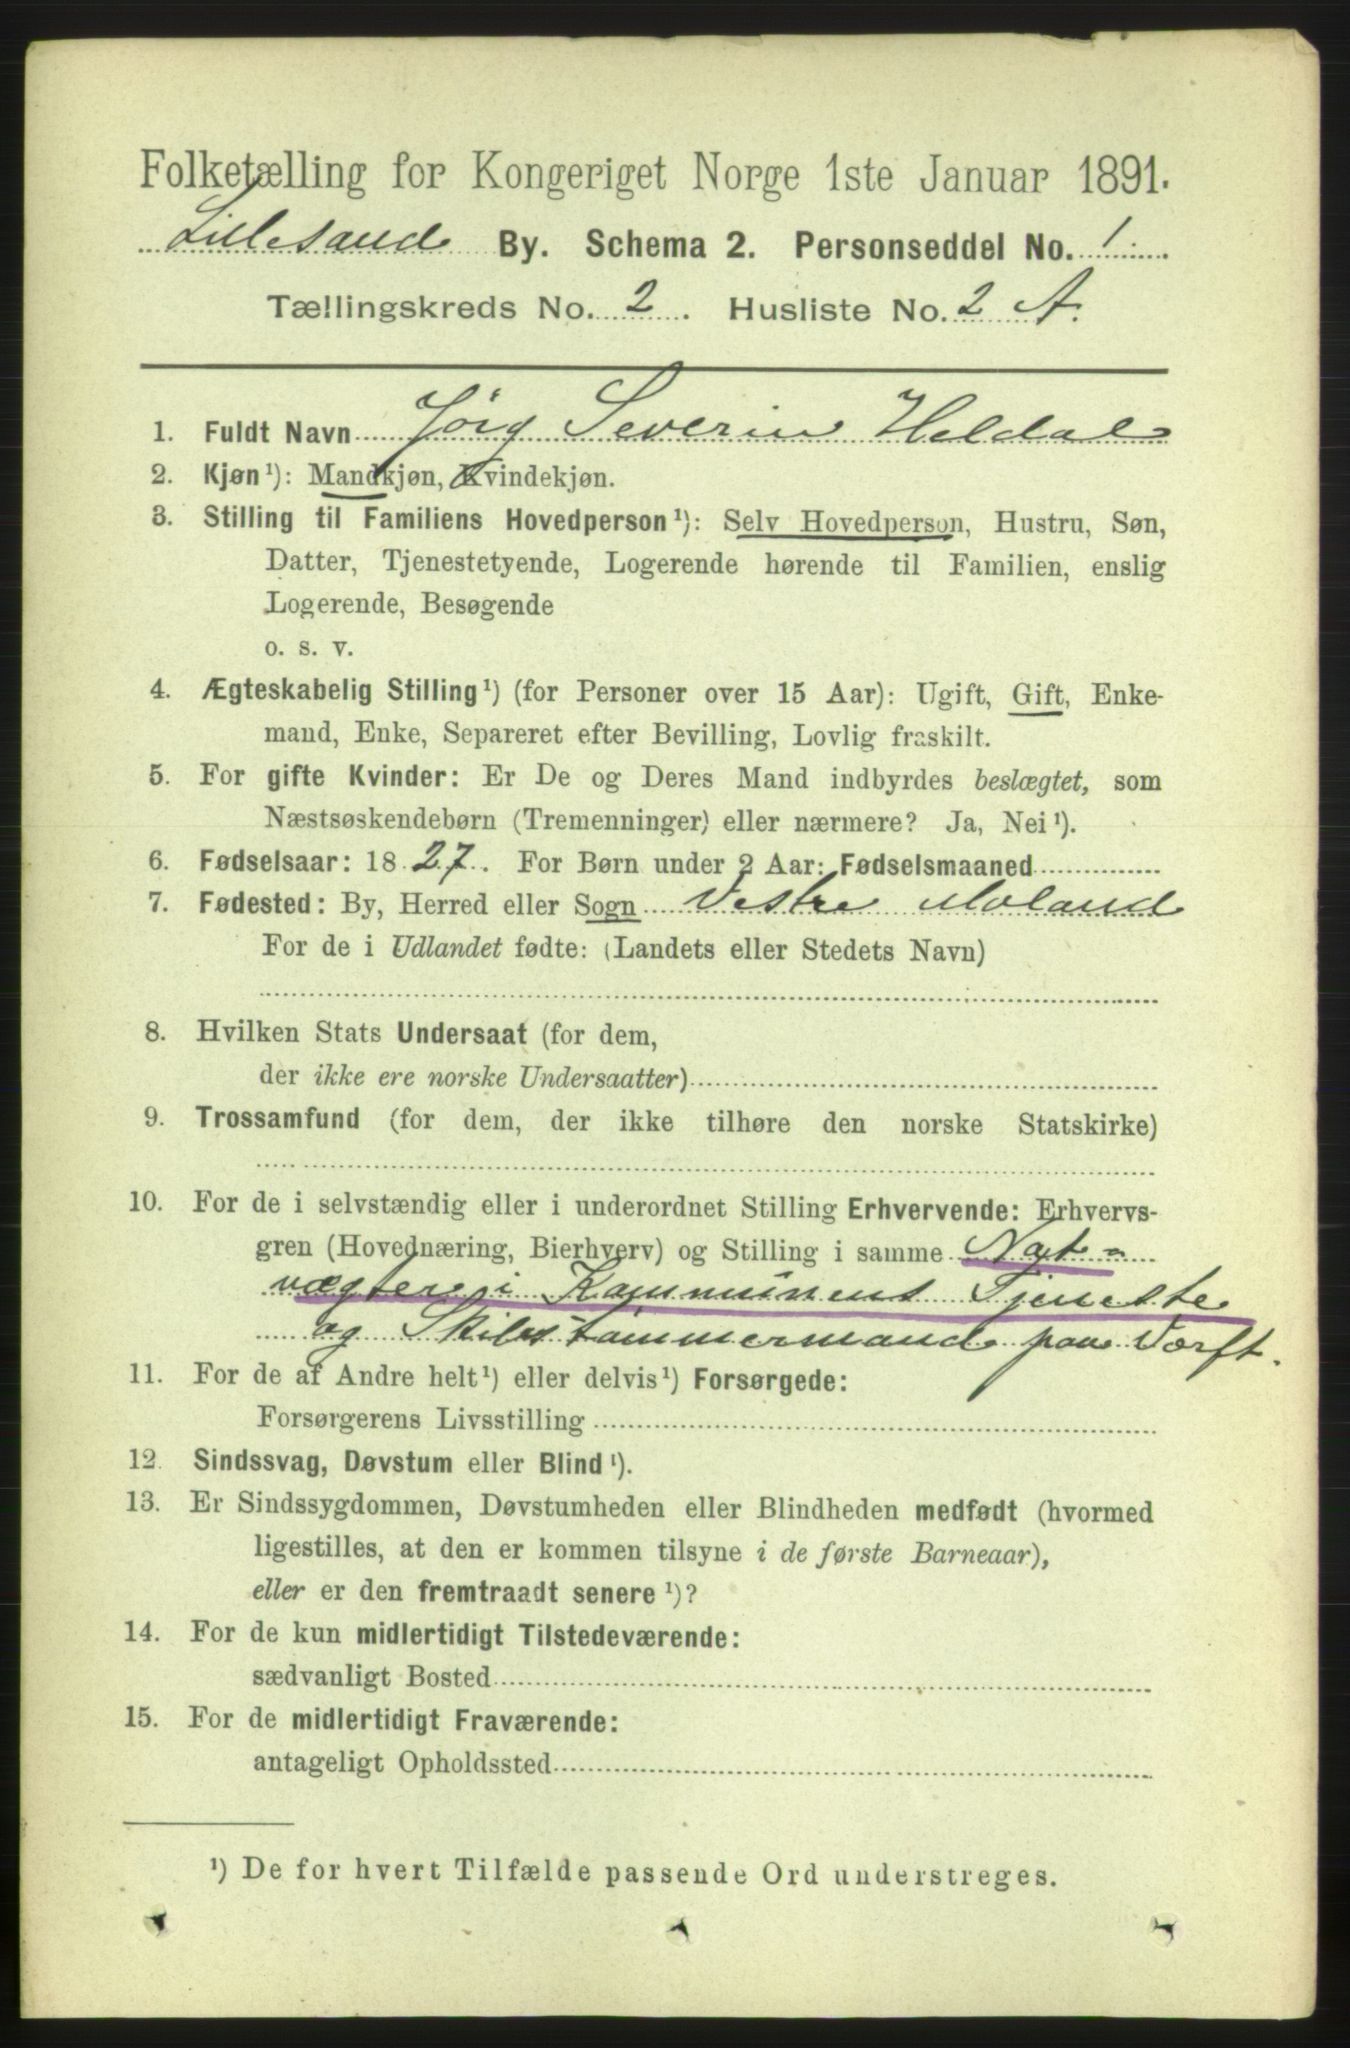 Folketælling for Kongeriget Norge 1ste Januar 1891.
Lillesand By. Schema 2. Personseddel No. 1
Tællingskreds No. 2. Husliste No. 2 A.
1. Fuldt Navn Jörg Severin Heldal
2. Kjøn¹): Mandkjøn, Kvindekjøn.
3. Stilling til Familiens Hovedperson¹): Selv Hovedperson, Hustru, Søn,
Datter, Tjenestetyende, Logerende hørende til Familien, enslig
Logerende, Besøgende
o. s. v.
4. Ægteskabelig Stilling¹) (for Personer over 15 Aar): Ugift, Gift, Enke-
mand, Enke, Separeret efter Bevilling, Lovlig fraskilt.
5. For gifte Kvinder: Er De og Deres Mand indbyrdes beslægtet, som
Næstsøskendebørn (Tremenninger) eller nærmere? Ja, Nei¹).
6. Fødselsaar: 1827. For Børn under 2 Aar: Fødselsmaaned
7. Fødested: By, Herred eller Sogn Vestre Moland
For de i Udlandet fødte: (Landets eller Stedets Navn)
8. Hvilken Stats Undersaat (for dem,
der ikke ere norske Undersaatter)
9. Trossamfund (for dem, der ikke tilhøre den norske Statskirke)
10. For de i selvstændig eller i underordnet Stilling Erhvervende: Erhvervs-
gren (Hovednæring, Bierhverv) og Stilling i samme Nat-
vægter i Kommunens Tjeneste
og Skibstømmermand paa Værft.
11. For de af Andre helt¹) eller delvis¹) Forsørgede:
Forsørgerens Livsstilling
12. Sindssvag, Døvstum eller Blind¹).
13. Er Sindssygdommen, Døvstumheden eller Blindheden medfødt (hvormed
ligestilles, at den er kommen tilsyne i de første Barneaar),
eller er den fremtraadt senere¹)?
14. For de kun midlertidigt Tilstedeværende:
sædvanligt Bosted
15. For de midlertidigt Fraværende:
antageligt Opholdssted
¹) De for hvert Tilfælde passende Ord understreges.